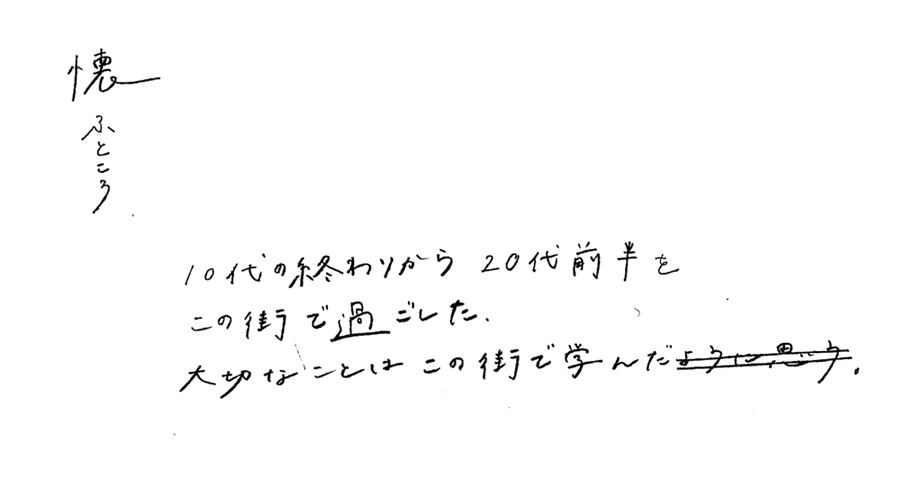 懐
ふところ
10代の終わりから20代前半を
この街で過ごした.
大切なことはこの街で学んだように思う.